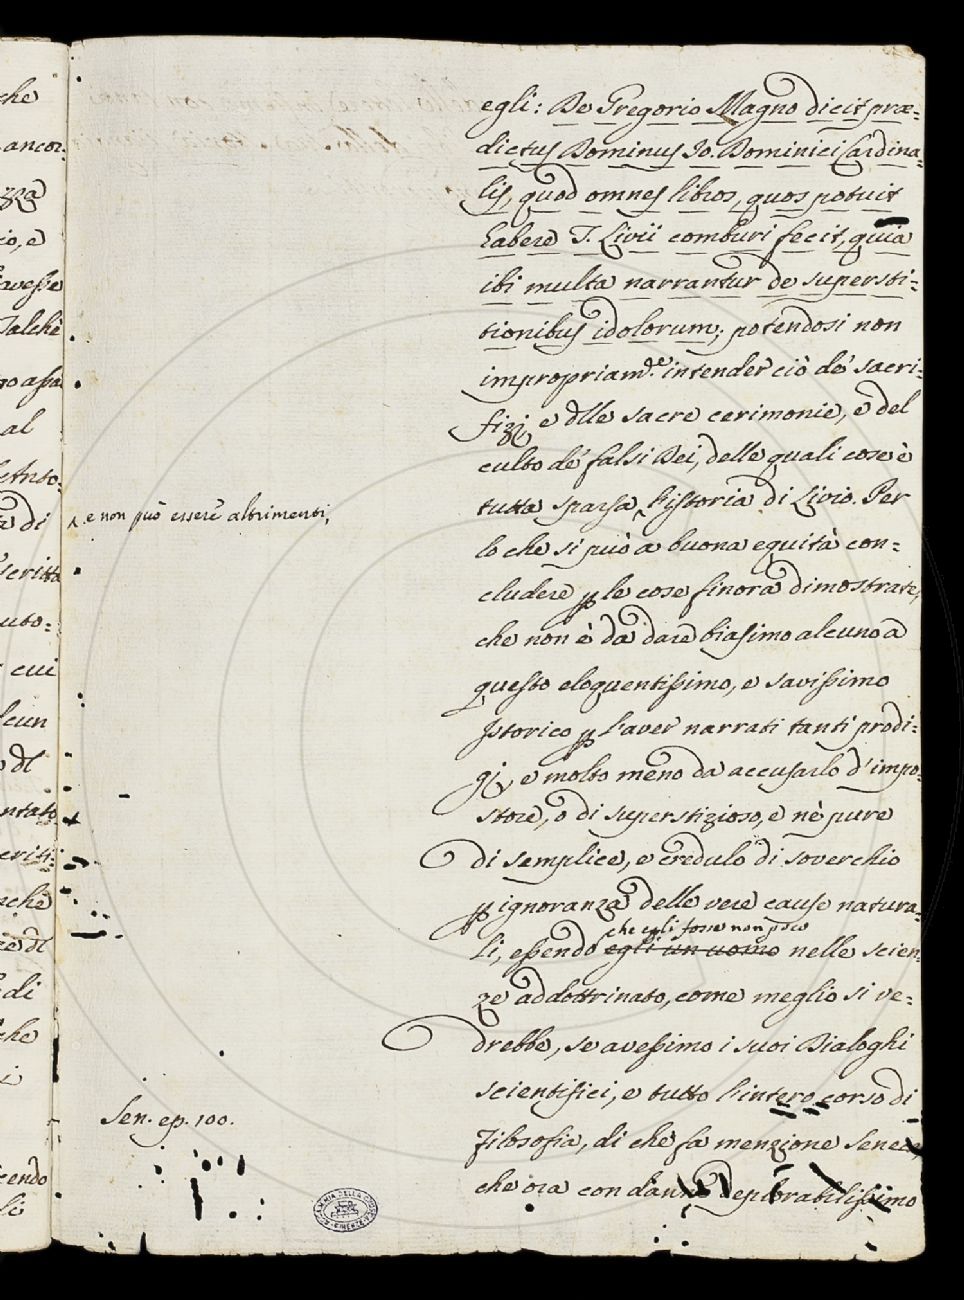 egli: De Gregorio Magno dicit præ-
dictus Dominus Jo. Dominici Cardina-
lis, quod omnes libros, quos potuit
habere T. Livii comburi fecit, quia
ibi multa narrantur de supersti-
tionibus idolorum; potendosi non
impropriam.te intender ciò de' sacri-
fizj, e dlle sacre cerimonie, e del
culto de' falsi Dei, delle quali cose è
tutta sparsa l'istoria di Livio. Per
e non può essere altrimenti,
lo che si può a buona equità con-
cludere p le cose finora dimostrate,
che non è da dare biasimo alcuno a
questo eloquentissimo, e savissimo
Istorico p l'aver narrati tanti prodi-
gj, e molto meno da accusarlo d'impo-
store, o di superstizioso, e nè pure
di semplice, e credulo di soverchio
p ignoranza delle vere cause natura-
che egli fosse non poco
li, essendo egli un uomo nelle scien-
ze addottrinato, come meglio si ve-
drebbe, se avessimo i suoi Dialoghi
scientifici, e tutto l'intero corso di
Filosofia, di che fa menzione Seneca,
Sen. ep. 100.
che ora con danno deplorabilissimo
che
ancor-
io, e
avesse
Talchè
al
di
scritta
cui
dl
che
di
ACCADEMIA DELLA CRUSCA
FIRENZE